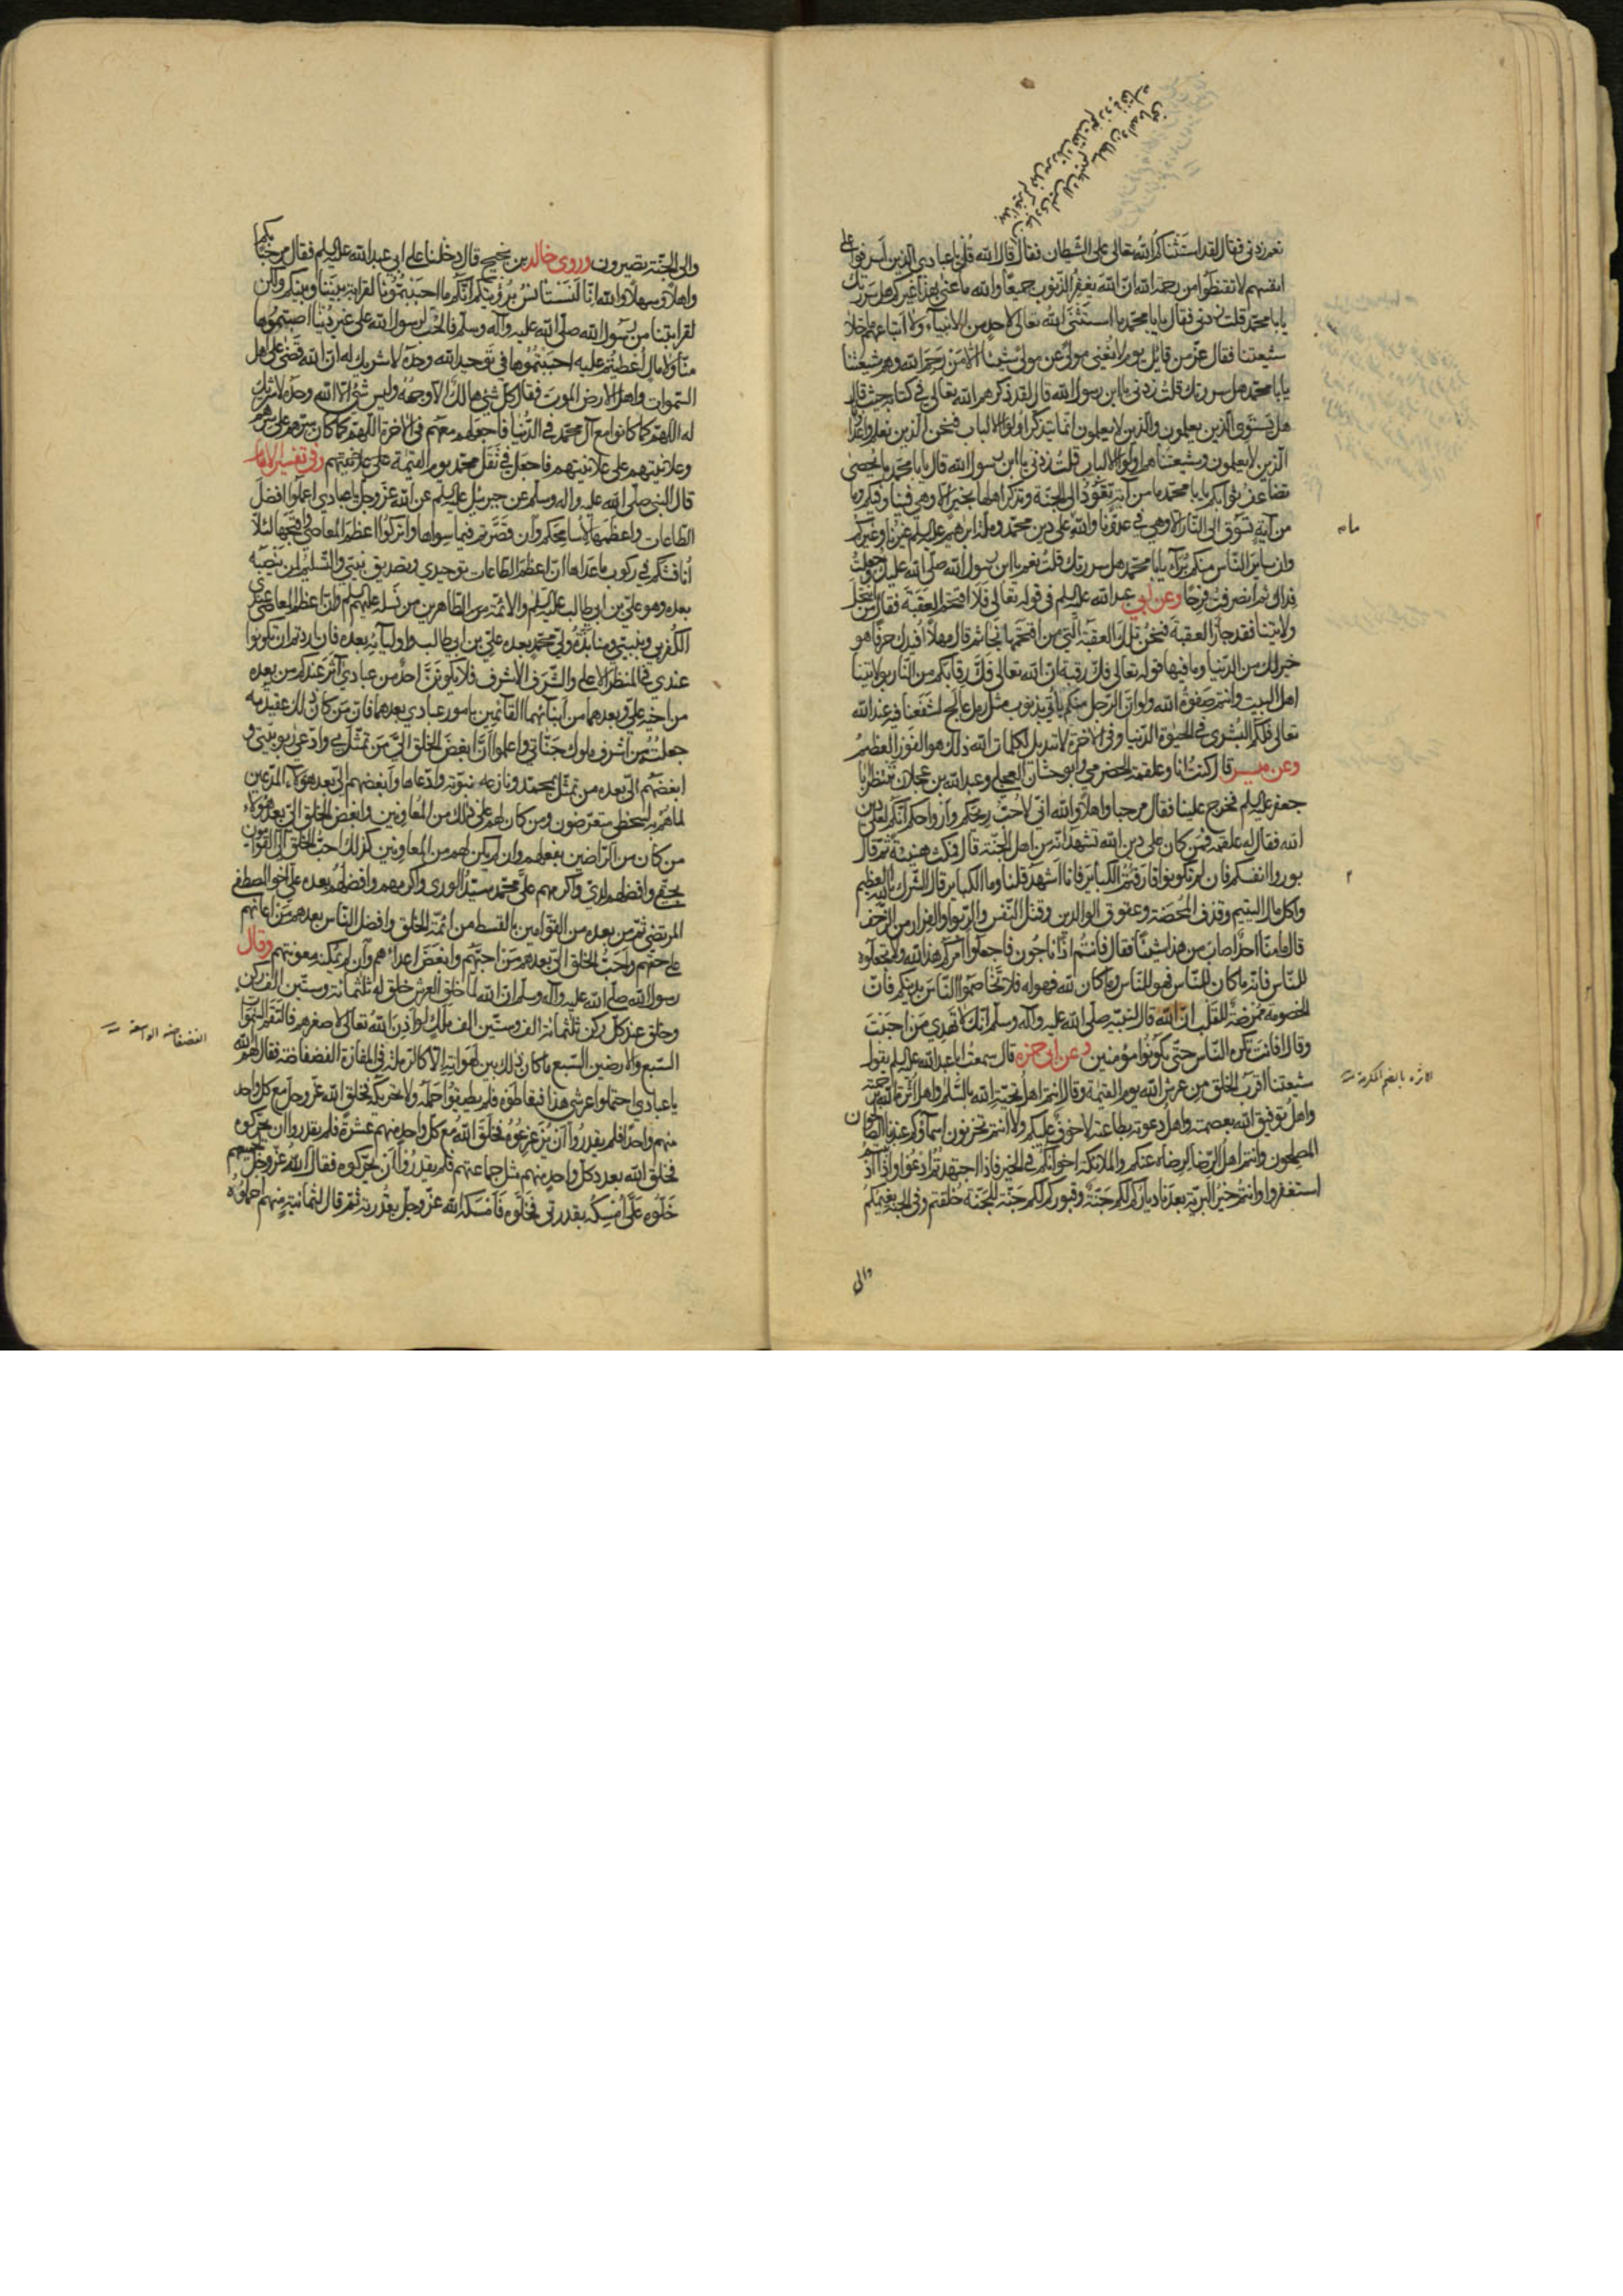 نعم زدني فقال لقد استثناكم الله تعالى على الشيطان فقال قال الله قل يا عبادي الذين اسرفوا على
انفسهم لا تقنطوا من رحمة الله ان الله يغفر الذنوب جميعا والله ما عنى بهذا غيركم هل سررتك
يا با محمد قلت زدني فقال يا با محمد ما استثنى الله تعالى لاحد من الانبياء ولا اتباعهم ما خلا
شيعتنا فقال عز من قائل يوم لا يغني مولى عن مولى شيئا الا من رحم الله وهم شيعتنا
يا با محمد هل سررتك قلت زدني يا ابن رسول الله قال لقد ذكرهم الله تعالى في كتابه حيث قال
هل يستوي الذين يعلمون والذين لا يعلمون انما يتذكر اولو الالباب فنحن الذين نعلم واعداؤنا
الذين لا يعلمون وشيعتنا هم اولو الالباب قلت زدني يا ابن رسول الله قال يا با محمد ما يحصى
تضاعف ثوابكم يا با محمد ما من آية تعود الى الجنة وتذكر اهلها بخير الا وهي فينا وفيكم وما
من آية تسوق الى النار الا وهي في عدونا والله على دين محمد وملة ابرهيم عليه السلم غيرنا وغيركم
وان ساير الناس منكم برآء يا با محمد هل سررتك قلت نعم يا ابن رسول الله صلى الله عليك وجعلت
فداك ثم انصرفت فرحا وعن ابي عبد الله عليه السلم في قوله تعالى فلا اقتحم العقبة فقال من انتحل
ولايتنا فقد جاز العقبة فنحن تلك العقبة التي من اقتحمها نجا ثم قال مهلا افيدك حرفا هو
خير لك من الدنيا وما فيها قوله تعالى فك رقبة ان الله تعالى فك رقابكم من النار بولايتنا
اهل البيت وانتم صفوة الله ولو ان الرجل منكم ياتي بذنوب مثل رمل عالج لشفعنا فيه عند الله
تعالى فلكم البشرى في الحيوة الدنيا وفي الاخرة لا تبديل لكلمات الله ذلك هو الفوز العظيم
وعن ميسر قال كنت انا وعلقمة الحضرمي وابو حسان العجلي وعبد الله بن عجلان ننتظر ابا
جعفر عليه السلم فخرج علينا فقال مرحبا واهلا والله اني لاحب ريحكم وارواحكم انكم لعلى دين
الله فقال له علقمة فمن كان على دين الله تشهد انه من اهل الجنة قال فمكث هنيئة ثم قال
بوروا انفسكم فان لم تكونوا قارفتم الكبائر فانا اشهد قلنا وما الكبائر قال الشرك بالله العظيم
واكل مال اليتيم وقذف المحصنة وعقوق الوالدين وقتل النفس والربوا والفرار من الزحف
قال ما منا احد اصاب من هذا شيئا فقال فانتم اذا ناجون فاجعلوا امركم هذا لله ولا تجعلوه
للناس فانه ما كان للناس فهو للناس وما كان لله فهو له فلا تخاصموا الناس بدينكم فان
الخصومة ممرضة للقلب ان الله قال لنبيه صلى الله عليه وآله وسلم انك لا تهدي من احببت
وقال افانت تكره الناس حتى يكونوا مؤمنين وعن ابي حمزه قال سمعت ابا عبد الله عليه السلم يقول
شيعتنا اقرب الخلق من عرش الله يوم القيمة وقال انتم اهل تحية الله بالسلم واهل اثرة الله برحمته
واهل توفيق الله بعصمته واهل دعوته بطاعته لا خوف عليكم ولا انتم تحزنون اسماؤكم عندنا الصالحون
المصلحون وانتم اهل الرضا لرضاه عنكم والملائكة اخوانكم في الخير فاذا اجتهدتم ادعوا واذا اذنبتم
استغفروا وانتم خير البرية بعدنا دياركم لكم جنة وقبوركم لكم جنة للجنة خلقتم وفي الجنة نعيمكم
والى
الاثرة بالضم المكرمة
والى الجنة تصيرون وروى خالد بن نجيح قال دخلنا على ابي عبد الله عليه السلم فقال مرحبا بكم
واهلا وسهلا والله انا لنستانس برؤيتكم انكم ما احببتمونا لقرابة بيننا وبينكم ولكن
لقرابتنا من رسول الله صلى الله عليه وآله وسلم فالحب لرسول الله على غير دنيا اصبتموها
منا ولا مال اعطيتم عليه احببتمونا في توحيد الله وحده لا شريك له ان الله قضى على اهل
السموات واهل الارض الموت فقال كل شيء هالك الا وجهه وليس شيء الا الله وحده لا شريك
له اللهم كما كانوا مع آل محمد في الدنيا فاجعلهم معهم في الاخرة اللهم كما كان سرهم على سرهم
وعلانيتهم على علانيتهم فاجعل في ثقل محمد يوم القيمة وفي تفسير الامام
قال النبي صلى الله عليه واله وسلم عن جبرئيل عليه السلم عن الله عز وجل يا عبادي اعملوا افضل
الطاعات واعظمها لاسامحكم وان قصرتم فيما سواها واتركوا اعظم المعاصي واقبحها لئلا
اناقشكم في ركوب ما عداها ان اعظم الطاعات توحيدي وتصديق نبيي والتسليم لمن ينصبه
بعده وهو علي بن ابي طالب عليه السلم والائمة من الطاهرين من نسله عليهم السلم وان اعظم المعاصي عندي
الكفر بي وبنبيي ومنابذة ولي محمد بعده علي بن ابي طالب واوليائه بعده فان اردتم ان تكونوا
عندي في المنظر الاعلى والشرف الاشرف فلا يكونن احد من عبادي آثر عندكم من بعده
من اخيه علي وبعدهما من ابنائهما القائمين بامور عبادي بعدهما فان من كان ذلك عقيدته
جعلته من اشرف ملوك جناتي واعلموا ان ابغض الخلق الي من تمثل بي وادعى ربوبيتي و
ابغضهم الي بعده من تمثل بمحمد ونازعه نبوته وادعاها وابغضهم الي بعد هؤلاء المدعين
لما هم به لسخطي متعرضون ومن كان لهم على ذلك من المعاونين وابغض الخلق الي بعد هؤلاء
من كان من الراضين بفعلهم وان لم يكن لهم من المعاونين كذلك احب الخلق الي القوامون
بحقي وافضلهم لدي واكرمهم علي محمد سيد الورى واكرمهم وافضلهم بعده علي اخو المصطفى
المرتضى ثم من بعده من القوامين بالقسط من ائمة الخلق وافضل الناس بعدهم من اعانهم
على حقهم واحب الخلق الي بعدهم من احبهم وابغض اعداءهم وان لم يمكنه معونتهم وقال
رسول الله صلى الله عليه وآله وسلم ان الله لما خلق العرش خلق له ثلثمائة وستين الف ركن
وخلق عند كل ركن ثلثمائة الف وستين الف ملك لو اذن الله تعالى لاصغرهم فالتقم السموات
السبع والارضين السبع ما كان ذلك بين لهواته الا كالرملة في المفازة الفضفاضة فقال لهم الله
يا عبادي احتملوا عرشي هذا فتعاطوه فلم يطيقوا حمله ولا تحريكه فخلق الله عز وجل مع كل واحد
منهم واحدا فلم يقدروا ان يزعزعوه فخلق الله مع كل واحد منهم عشرة فلم يقدروا ان يحركوه
فخلق الله بعدد كل واحد منهم مثل جماعتهم فلم يقدروا ان يحركوه فقال الله عز وجل لجميعهم
خلوه علي امسكه بقدرتي فخلوه فامسكه الله عز وجل بقدرته ثم قال لثمانية منهم احملوه
الفضفاضة الواسعة